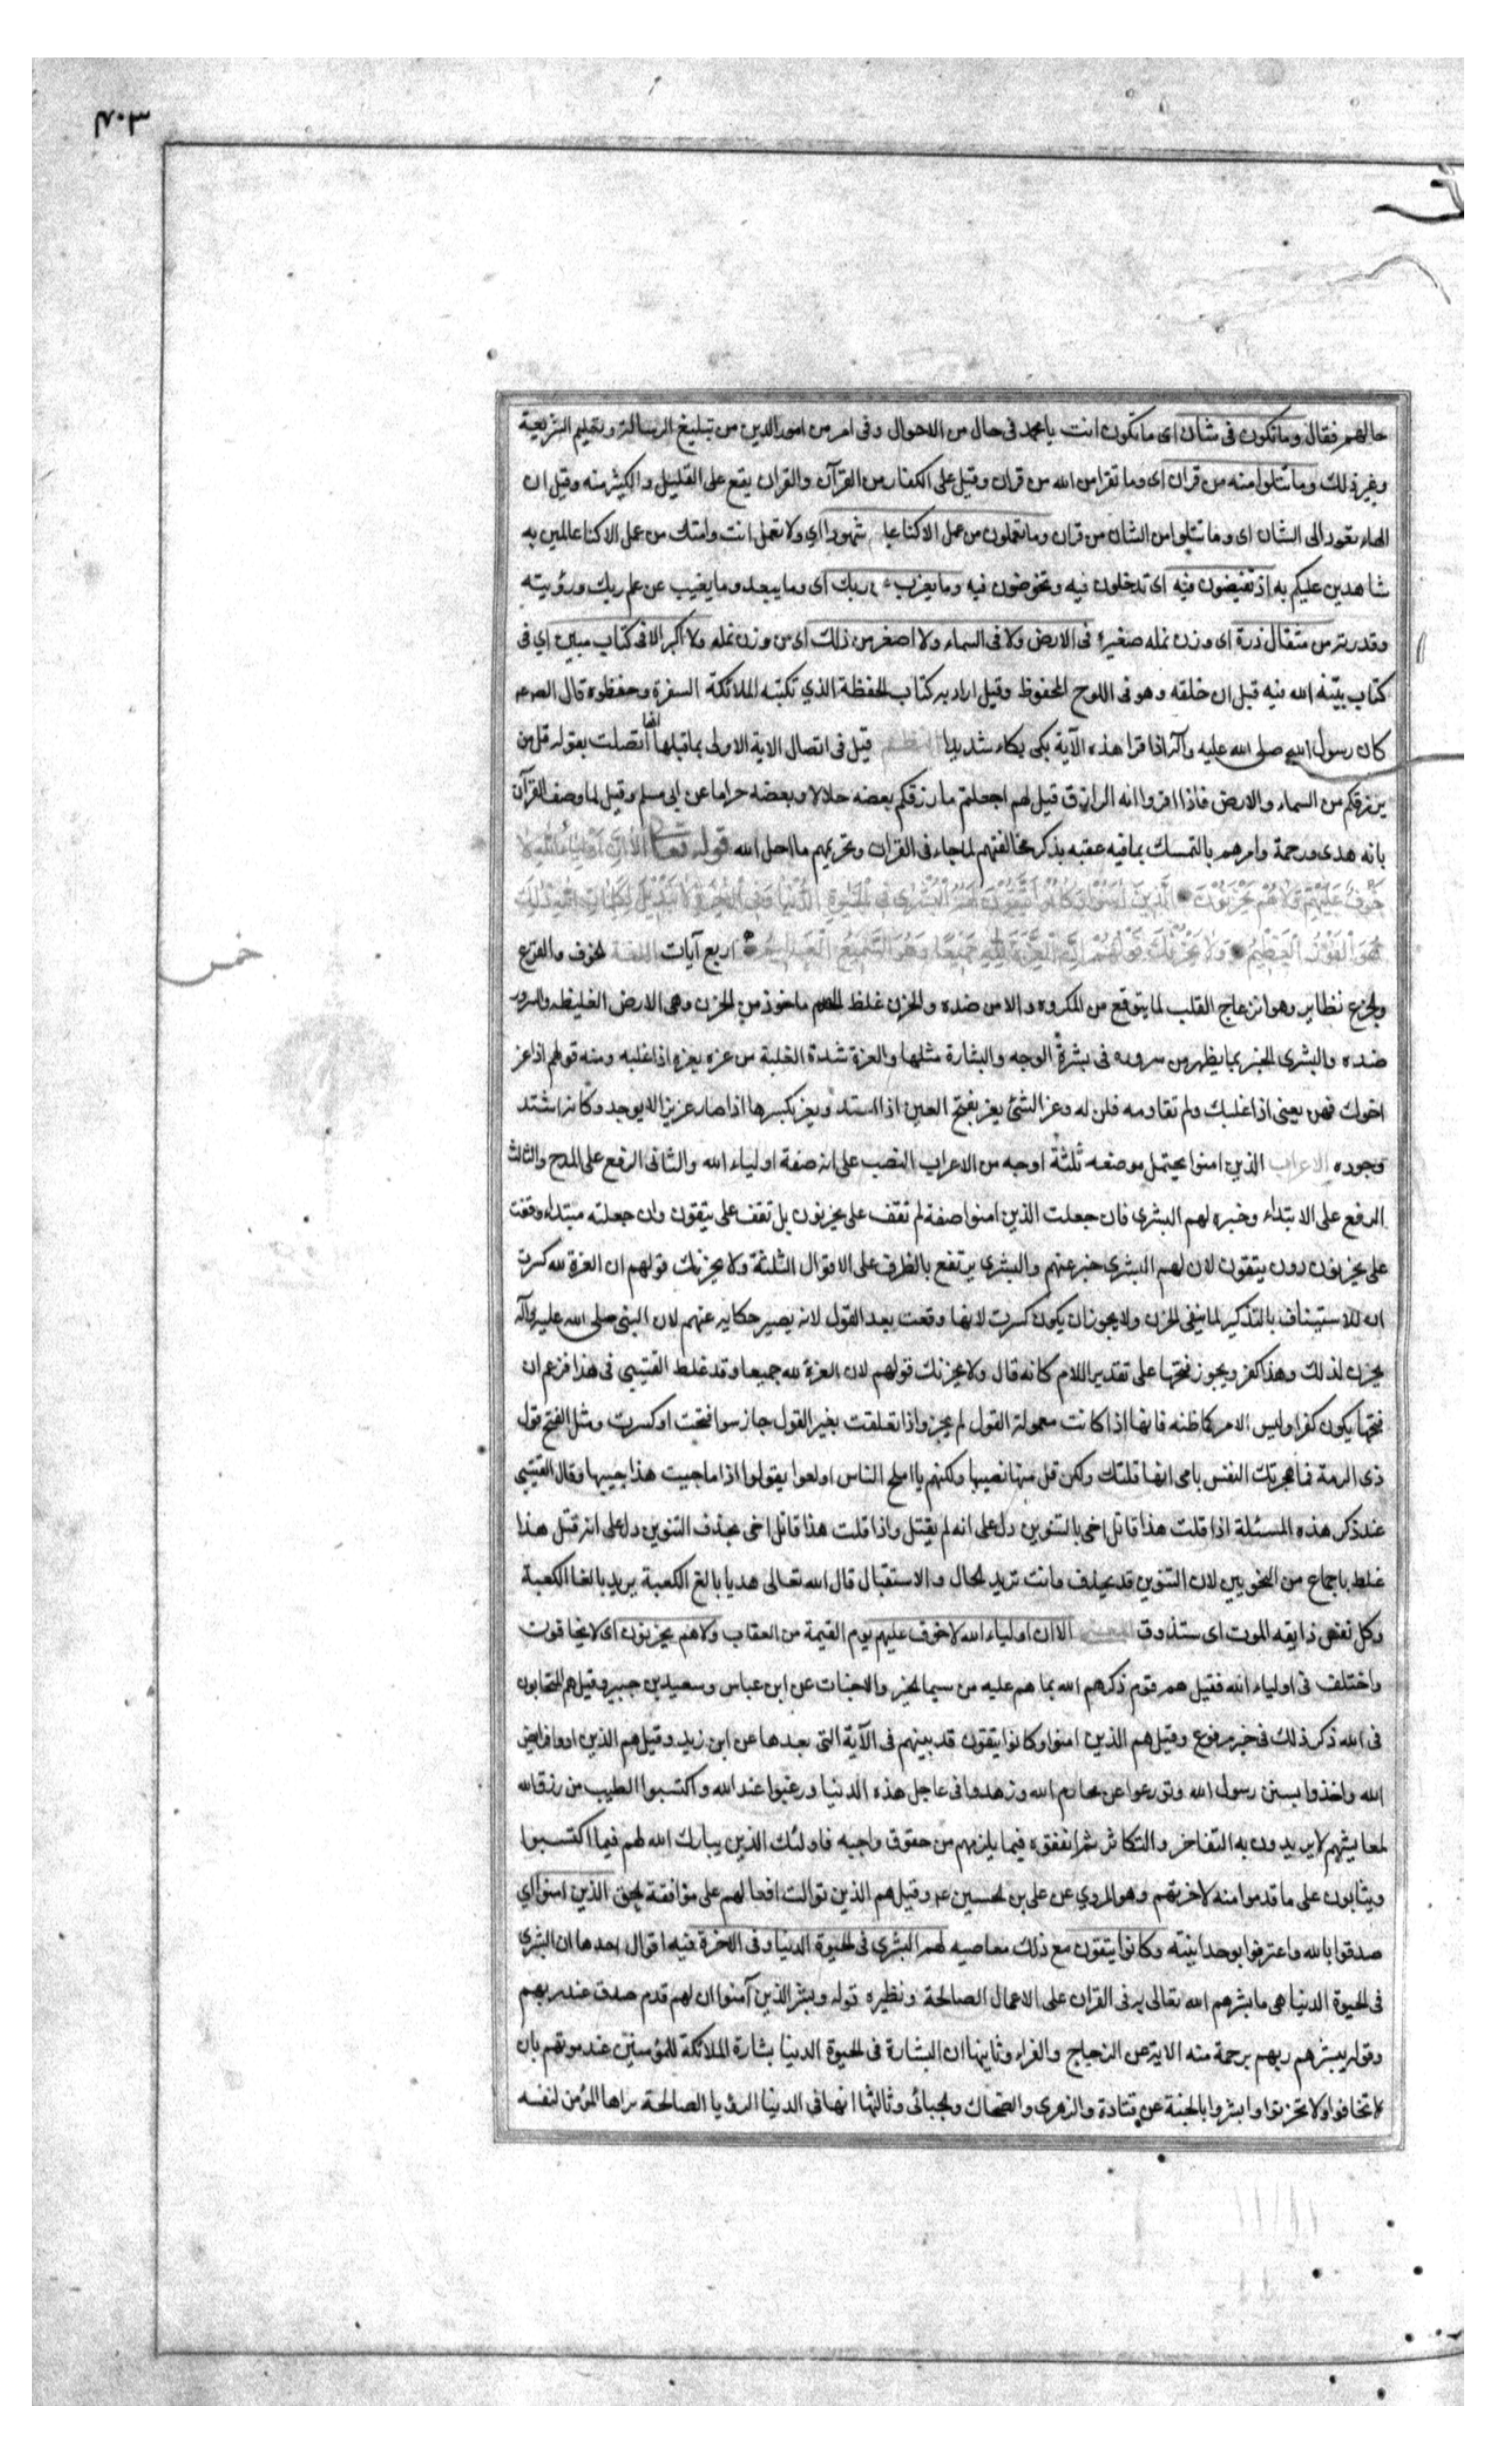 ٣٠٧
حالهم فقال وما تكون في شان اى ما تكون انت يا محمد في حال من الاحوال وفى امر من امور الدين من تبليغ الرسالة وتعليم الشريعة
وغير ذلك وما تتلوا منه من قران اى وما تقرا من الله من قران وقيل على الكفار من القرآن والقران يقع على القليل والكثير منه وقيل ان
الهاء تعود الى الشان اى وما تتلوا من الشان من قران وما تعملون من عمل الا كنا عليكم شهودا اي ولا تعمل انت وامتك من عمل الا كنا عالمين به
شاهدين عليكم به اذ تفيضون فيه اى تدخلون فيه وتخوضون فيه وما يعزب عن ربك اى وما يبعد وما يغيب عن علم ربك ورؤيته
وقدرته من مثقال ذرة اى وزن نمله صغيرة في الارض ولا في السماء ولا اصغر من ذلك اى من وزن نمله ولا اكبر الا في كتاب مبين اي في
كتاب بينه الله فيه قبل ان خلقه وهو في اللوح المحفوظ وقيل اراد به كتاب الحفظة الذي تكتبه الملائكة السفرة وحفظوه قال الصادق عم
كان رسول الله صلى الله عليه وآله اذا قرا هذه الآية بكى بكاء شديدا النظم قيل في اتصال الاية الاولى بما قبلها انها اتصلت بقوله قل من
يرزقكم من السماء والارض فاذا اقروا انه الرازق قيل لهم اجعلتم ما رزقكم بعضه حلالا وبعضه حراما عن ابى مسلم وقيل لما وصف القرآن
بانه هدى ورحمة وامرهم بالتمسك بما فيه عقبه بذكر مخالفتهم لما جاء في القران وتحريمهم ما احل الله قوله تعالى الا ان اولياء الله لا
خوف عليهم ولا هم يحزنون الذين امنوا وكانوا يتقون لهم البشرى في الحيوة الدنيا وفى الاخرة لا تبديل لكلمات الله ذلك
هو الفوز العظيم ولا يحزنك قولهم ان العزة لله جميعا وهو السميع العليم اربع آيات اللغة الخوف والفزع
والجزع نظاير وهو انزعاج القلب لما يتوقع من المكروه والامن ضده والحزن غلظ الهم ماخوذ من الحزن وهى الارض الغليظه والسرور
ضده والبشرى الخبر بما يظهر من سروره في بشرة الوجه والبشارة مثلها والعزة شدة الغلبة من عزه يعزه اذا غلبه ومنه قولهم اذا عز
اخوك فهن يعنى اذا غلبك ولم تقاومه فلن له وعز الشئ يعز بفتح العين اذا اشتد ويعز بكسرها اذا صار عزيزا لا يوجد وكانه اشتد
وجوده الاعراب الذين امنوا يحتمل موضعه ثلثة اوجه من الاعراب النصب على انه صفة اولياء الله والثانى الرفع على المدح والثالث
الرفع على الابتداء وخبره لهم البشرى فان جعلت الذين امنوا صفة لم تقف على يحزنون بل تقف على يتقون وان جعلته مبتداء وقفت
على يحزنون دون يتقون لان لهم البشرى خبر عنهم والبشرى يرتفع بالظرف على الاقوال الثلثة ولا يحزنك قولهم ان العزة لله كسرت
ان للاستيناف بالتذكير لما ينفى الحزن ولا يجوز ان يكون كسرت لانها وقعت بعد القول لانه يصير حكايه عنهم لان النبى صلى الله عليه وآله
يحزن لذلك وهذا كفر ويجوز فتحها على تقدير اللام كانه قال ولا يحزنك قولهم لان العزة لله جميعا وقد غلط القتيبي في هذا فزعم ان
فتحها يكون كفرا وليس الامر كما ظنه فانها اذا كانت معمولة القول لم يجز واذا تعلقت بغير القول جاز سوا فتحت او كسرت ومثل الفتح قول
ذى الرمة فما هجرتك النفس يا مى انها قلتك ولكن قل منها نصيبها ولكنهم يا املح الناس اولعوا بقولوا اذا ما جييت هذا حبيبها وقال القتيبي
عند ذكر هذه المسئلة اذا قلت هذا قاتل اخى بالتنوين دل على انه لم يقتل واذا قلت هذا قاتل اخى بحذف التنوين دل على انه قتل هذا
غلط باجماع من النحويين لان التنوين قد يحذف وانت تريد الحال والاستقبال قال الله تعالى هديا بالغ الكعبة يريد بالغا الكعبة
وكل نفس ذايقه الموت اى ستذوق المعنى الا ان اولياء الله لا خوف عليهم يوم القيمة من العقاب ولا هم يحزنون اى لا يخافون
واختلف في اولياء الله فقيل هم قوم ذكرهم الله بما هم عليه من سيما الخير والاخبات عن ابن عباس وسعيد بن جبير وقيل هم المتحابون
في الله ذكر ذلك في خبر مرفوع وقيل هم الذين امنوا وكانوا يتقون قد بينهم في الآية التى بعدها عن ابن زيد وقيل هم الذين ادوا فرايض
الله واخذوا بسنن رسول الله وتورعوا عن محارم الله وزهدوا في عاجل هذه الدنيا ورغبوا عند الله واكتسبوا الطيب من رزق الله
لمعايشهم لا يريدون به التفاخر والتكاثر ثم انفقوه فيما يلزمهم من حقوق واجبه فاولئك الذين يبارك الله لهم فيما اكتسبوا
ويثابون على ما قدموا منه لاخرتهم وهو المروي عن على بن الحسين عم وقيل هم الذين توالت افعالهم على موافقة الحق الذين امنوا اي
صدقوا بالله واعترفوا بوحدانيته وكانوا يتقون مع ذلك معاصيه لهم البشرى في الحيوة الدنيا وفى الاخرة فيه اقوال احدها ان البشرى
في الحيوة الدنيا هى ما بشرهم الله تعالى به في القران على الاعمال الصالحة ونظيره قوله وبشر الذين آمنوا ان لهم قدم صدق عند ربهم
وقوله يبشرهم ربهم برحمة منه الاية عن الزجاج والفراء وثانيها ان البشارة في الحيوة الدنيا بشارة الملائكة للمؤمنين عند موتهم بان
لا تخافوا ولا تحزنوا وابشروا بالجنة عن قتادة والزهرى والضحاك والجبائى وثالثها انها في الدنيا الرؤيا الصالحة يراها المؤمن لنفسه
خمس